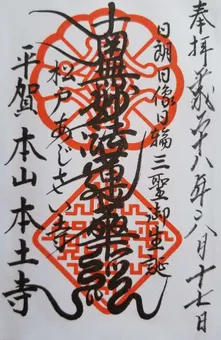 奉拝
令和六年八月十七日
日朗日像日輪三聖御生誕
南無妙法蓮華経
松戸あじさい寺
平賀 本山本土寺